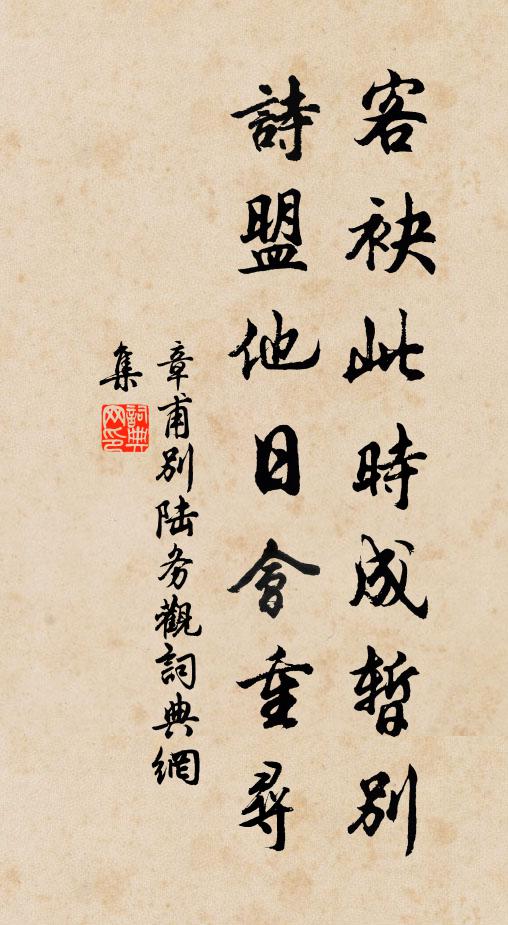 客袂此時成暫別
詩盟他日會重尋
章甫別陸務觀詞典網
集
詞典
网印